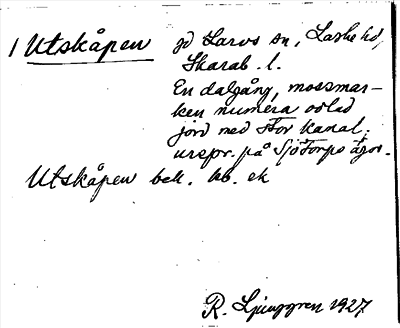 1 Utskåpen jo Larvs sn, Laske hd,
Skarab. l.
En dalgång, mossmar-
ken numera odlad
jord med stor kanal,
urspr. på Sjötorps ägor.
Utskåpen bek. bb. ek
R. Ljunggren 1927